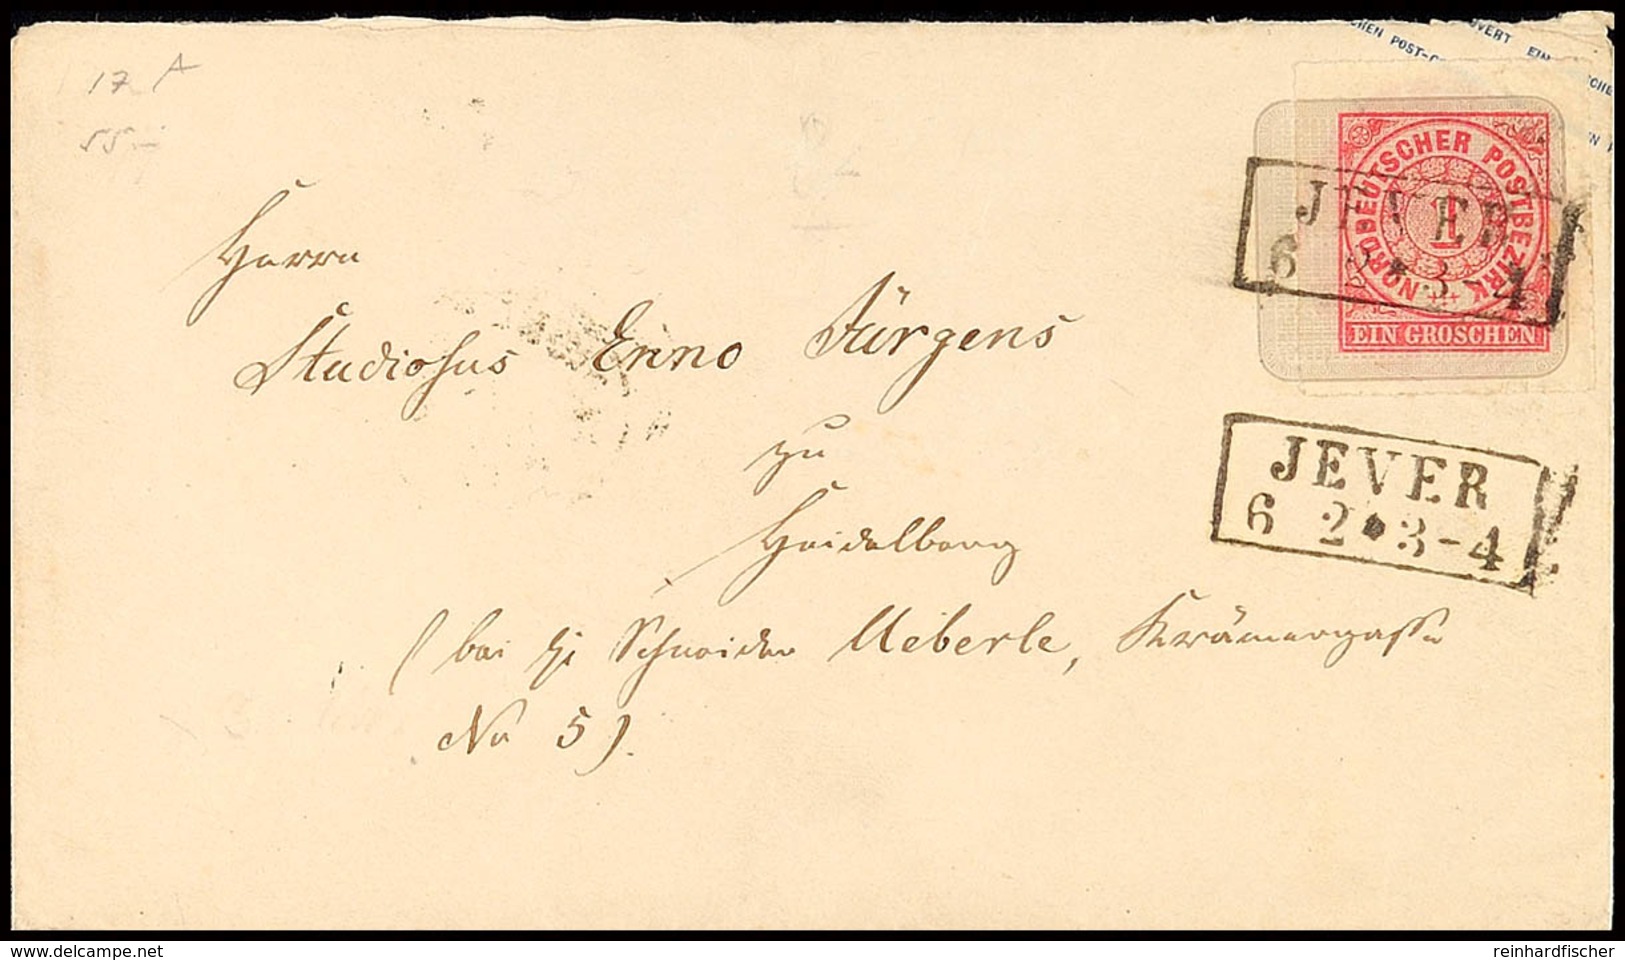 17 A
UVERT EIN
CHEN POST-C
NORDDEUTSCHER POSTBEZIRK
1
EIN GROSCHEN
JEVER
6 3-4
JEVER
6 2 3-4
Herrn
Studiosus Enno Jürgens
zu
Heidelberg
(bei Schneider Ueberle, Krämergasse
No 5).
delcampe.net
reinhardfischer